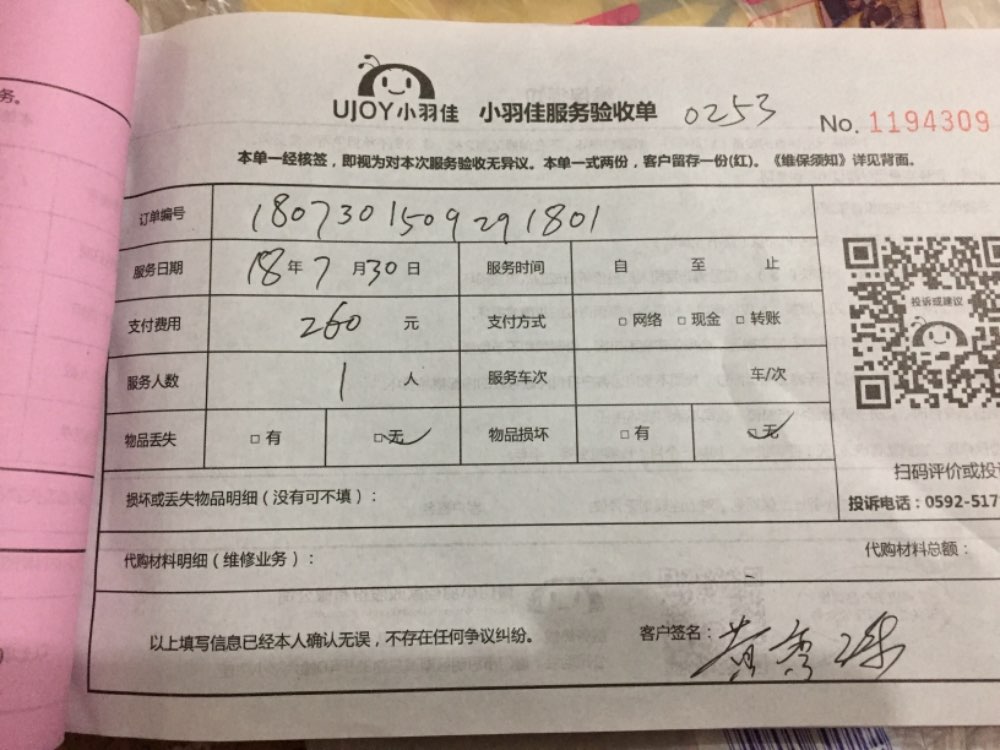 务。
UJOY小羽佳 小羽佳服务验收单 0253 No. 1194309
本单一经核签，即视为对本次服务验收无异议。本单一式两份，客户留存一份(红)。《维保须知》详见背面。
订单编号 1807301509291801
服务日期 18年7月30日 服务时间 自 至 止
支付费用 260 元 支付方式 □ 网络 □ 现金 □ 转账
投诉或建议
服务人数 1 人 服务车次 车/次
物品丢失 □ 有 □ 无 物品损坏 □ 有 □ 无
扫码评价或投
损坏或丢失物品明细（没有可不填）：
投诉电话：0592-517
代购材料明细（维修业务）： 代购材料总额：
以上填写信息已经本人确认无误，不存在任何争议纠纷。 客户签名：黄秀珠